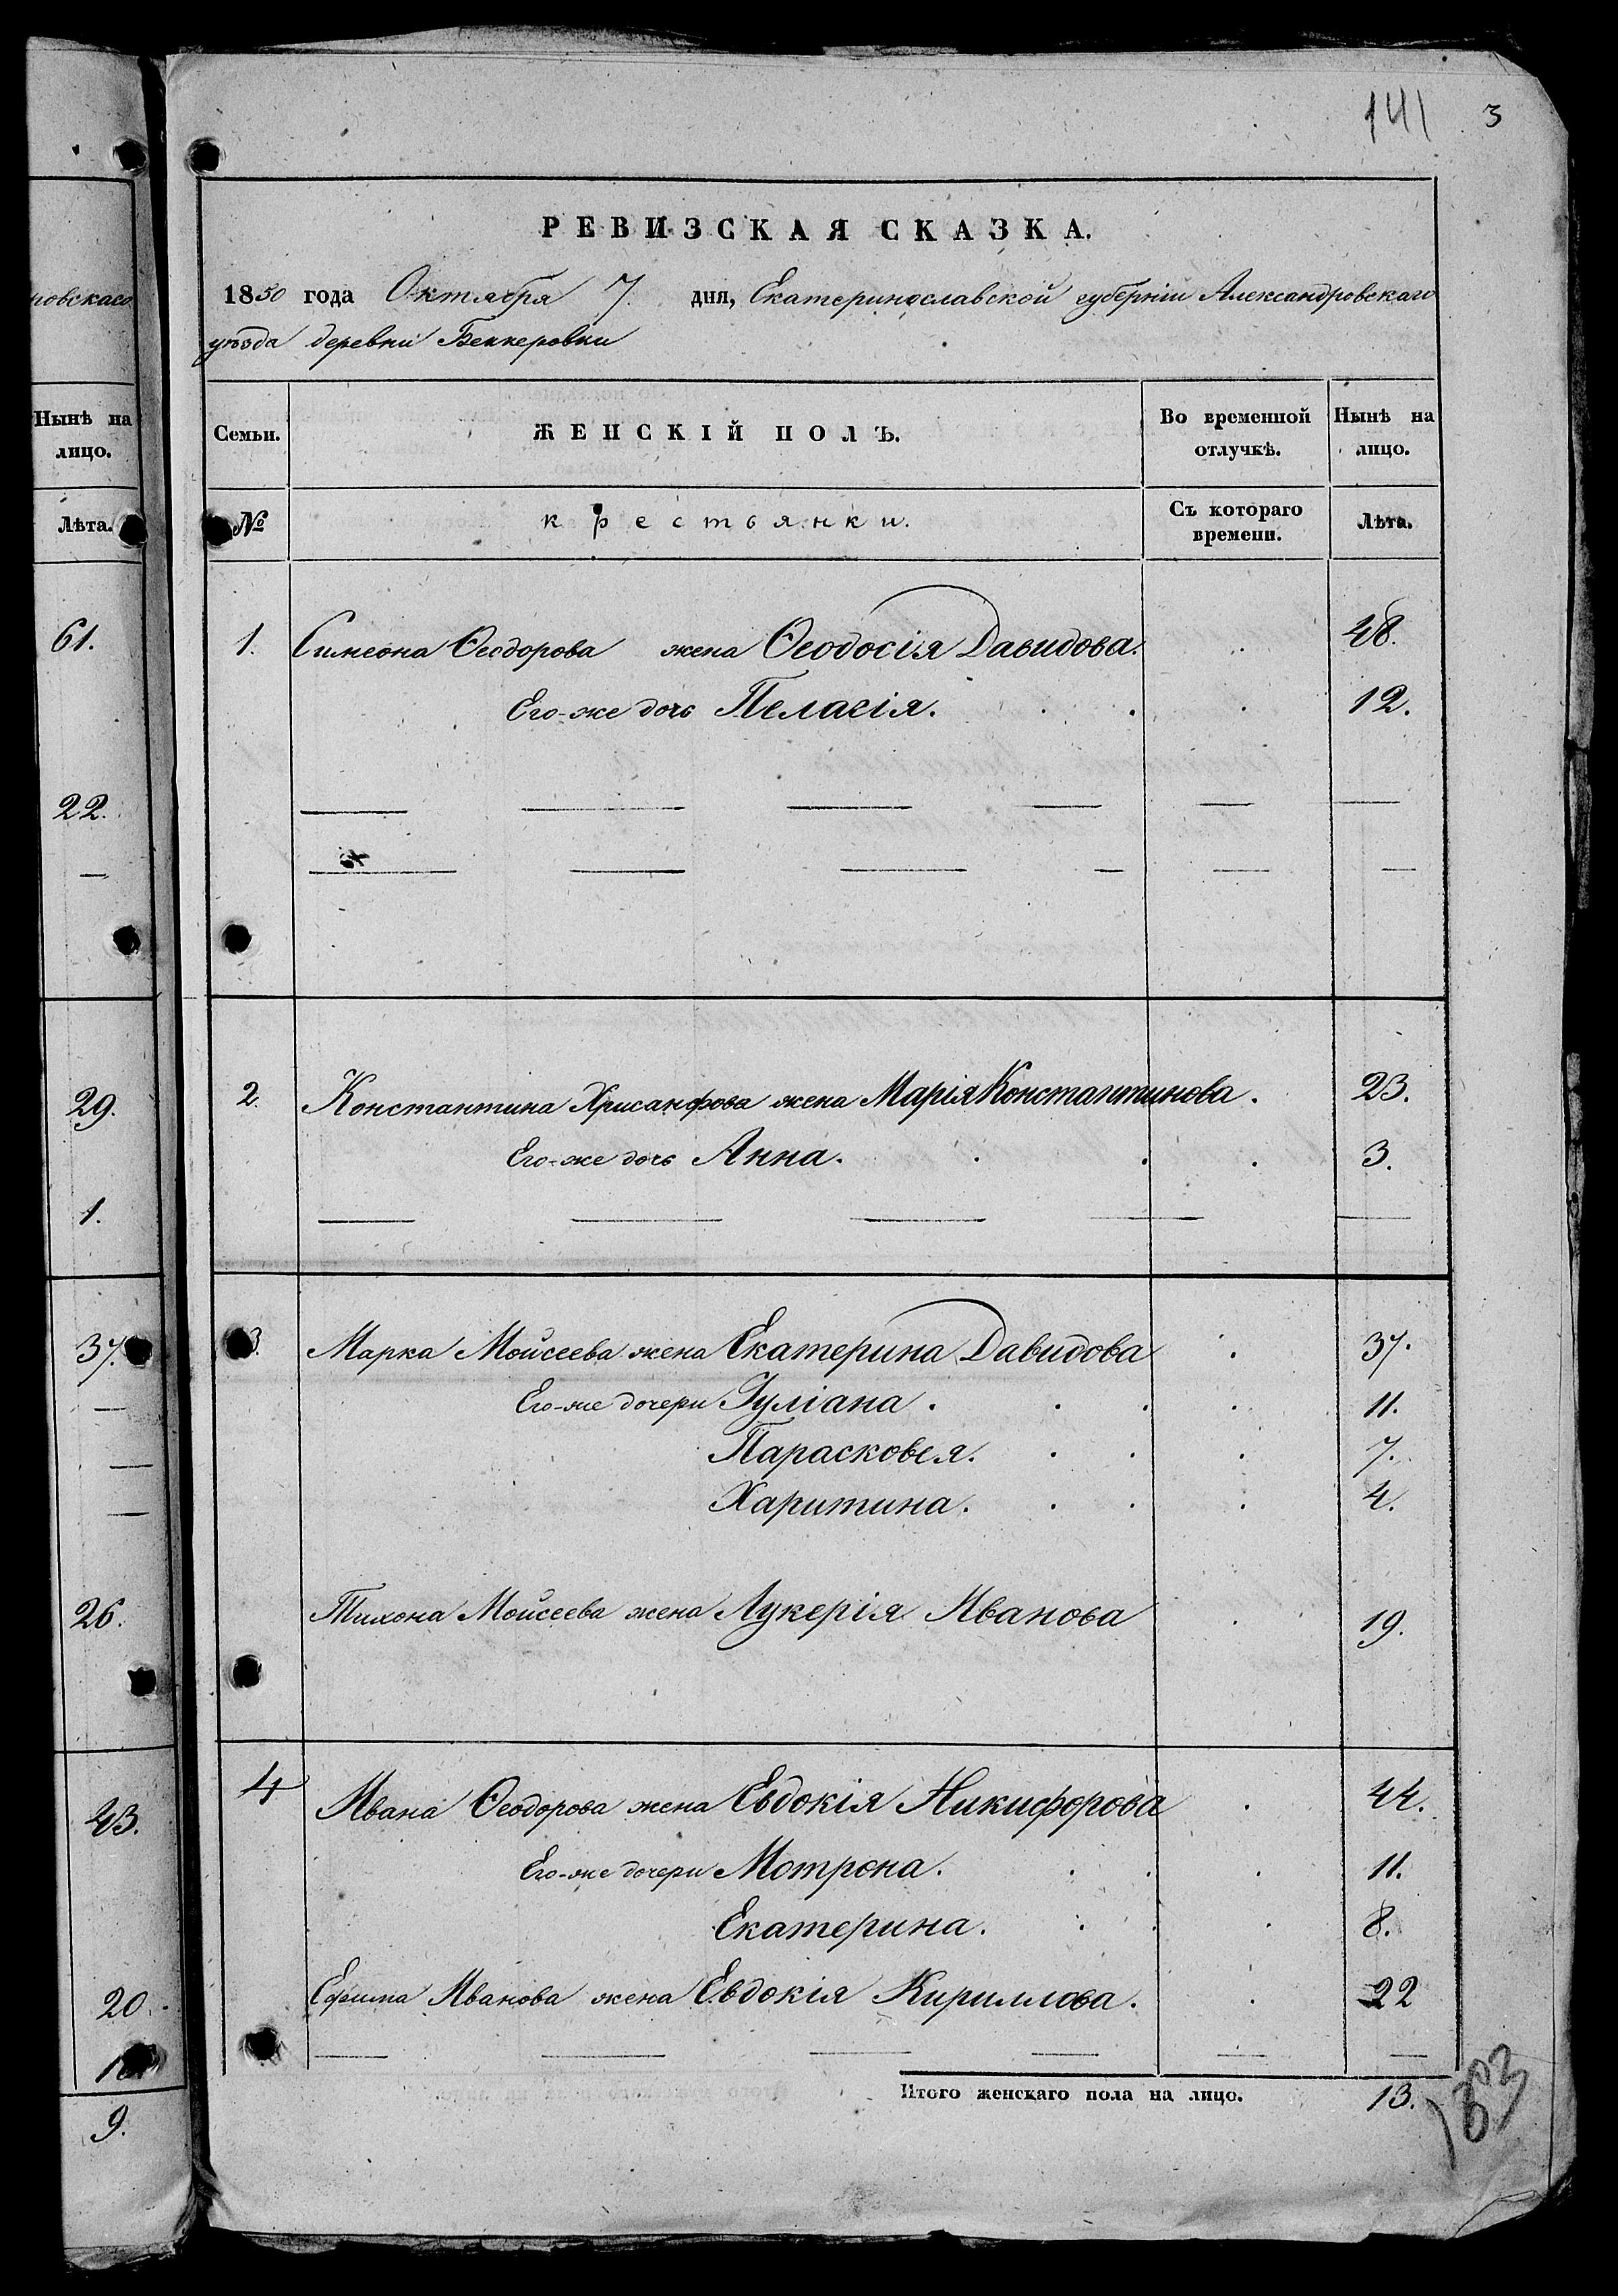 141 3
РЕВИЗСКАЯ СКАЗКА.
1850 года Октября 7. дня, Екатеринославской губерніи Александровскаго
уѣзда деревни Беккеровки
Семьи.
ЖЕНСКІЙ ПОЛЪ.
Во временной отлучкѣ.
Нынѣ на лицо.
№
крестьянки.
Съ котораго времени.
Лѣта.
1. Симеона Ѳеодорова жена Ѳеодосія Давидова. 48.
Его-же дочь Пелагія. 12.
2. Константина Хрисанфова жена Марія Константинова. 23.
Его-же дочь Анна. 3.
3. Марка Мойсеева жена Екатерина Давидова 37.
Его-же дочери Іуліана. 11.
Парасковея. 7.
Харитина. 4.
Тихона Мойсеева жена Лукерія Иванова 19.
4 Ивана Ѳеодорова жена Евдокія Никифорова 44.
Его-же дочери Мотрона. 11.
Екатерина. 8.
Ефима Иванова жена Евдокія Кириллова. 22
Итого женскаго пола на лицо. 13.
ровскаго
Нынѣ на
лицо.
Лѣта.
61.
22.
29.
1.
37.
26.
43.
20.
9.